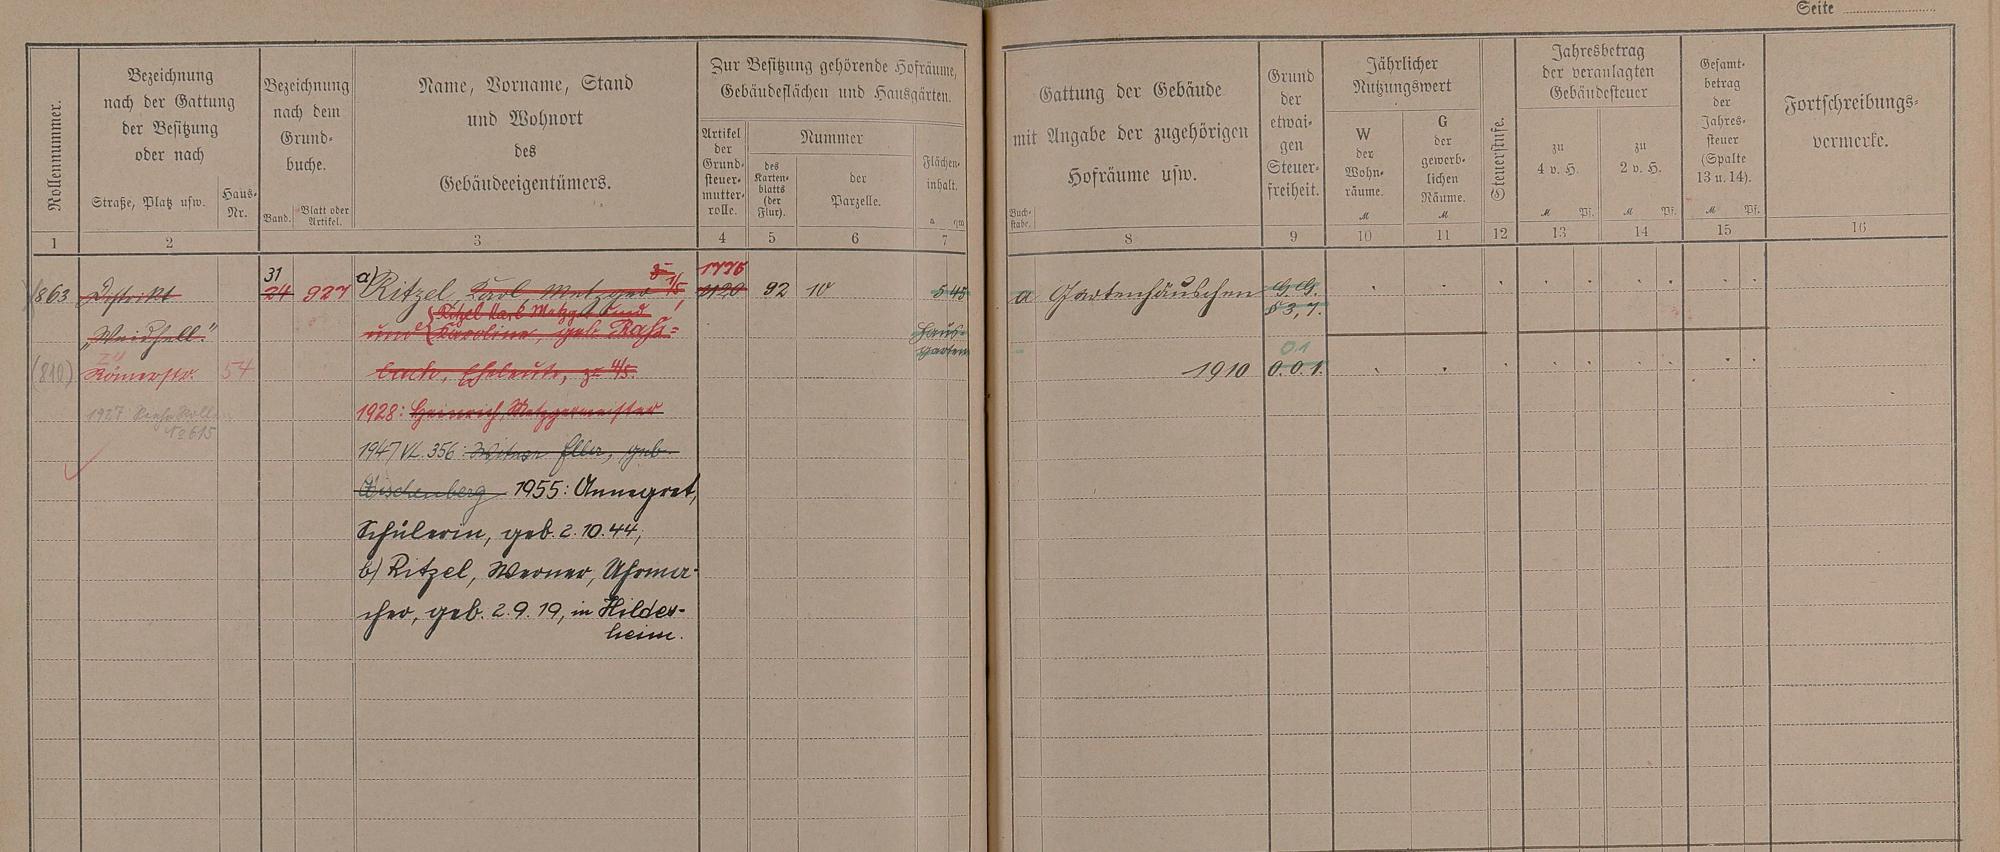 Seite
Rollennummer.
Bezeichnung
nach der Gattung
der Besitzung
oder nach
Straße, Platz usw.
Haus-
Nr.
Bezeichnung
nach dem
Grund-
buche.
Band.
Blatt oder
Artikel.
Name, Vorname, Stand
und Wohnort
des
Gebäudeeigentümers.
Zur Besitzung gehörende Hofräume,
Gebäudeflächen und Hausgärten.
Artikel
der
Grund-
steuer-
mutter-
rolle.
Nummer
des
Karten-
blatts
(der
Flur).
der
Parzelle.
Flächen-
inhalt.
a qm
Buch-
stabe.
Gattung der Gebäude
mit Angabe der zugehörigen
Hofräume usw.
Grund
der
etwai-
gen
Steuer-
freiheit.
Jährlicher
Nutzungswert
W
der
Wohn-
räume.
M
G
der
gewerb-
lichen
Räume.
M
Steuerstufe.
Jahresbetrag
der veranlagten
Gebäudesteuer
zu
4 v. H.
M Pf.
zu
2 v. H.
M Pf.
Gesamt-
betrag
der
Jahres-
steuer
(Spalte
13 u. 14).
M Pf.
Fortschreibungs-
vermerke.
1 2 3 4 5 6 7 8 9 10 11 12 13 14 15 16
863 Distrikt 31 24 927 a) Ritzel, Karl, Metzger 1/5, 1120 92 10 5 45 a Gartenhäuschen G.G.
§ 3, 7.
Ritzel Karl Metzger und
und Karoline, geb. Haus-
garten
(810) Römerstr. 54 Eheleute, zu 4/5. 1910 0.0.1.
1928: Heinrich, Metzgermeister
1927 Siehe Rollen
No 615
1947 VL. 356: Witwe geb.
1955: Annegret,
Schülerin, geb. 2.10.44;
b) Ritzel, Werner, Uhrma-
cher, geb. 2.9.19, in Hildes-
heim.